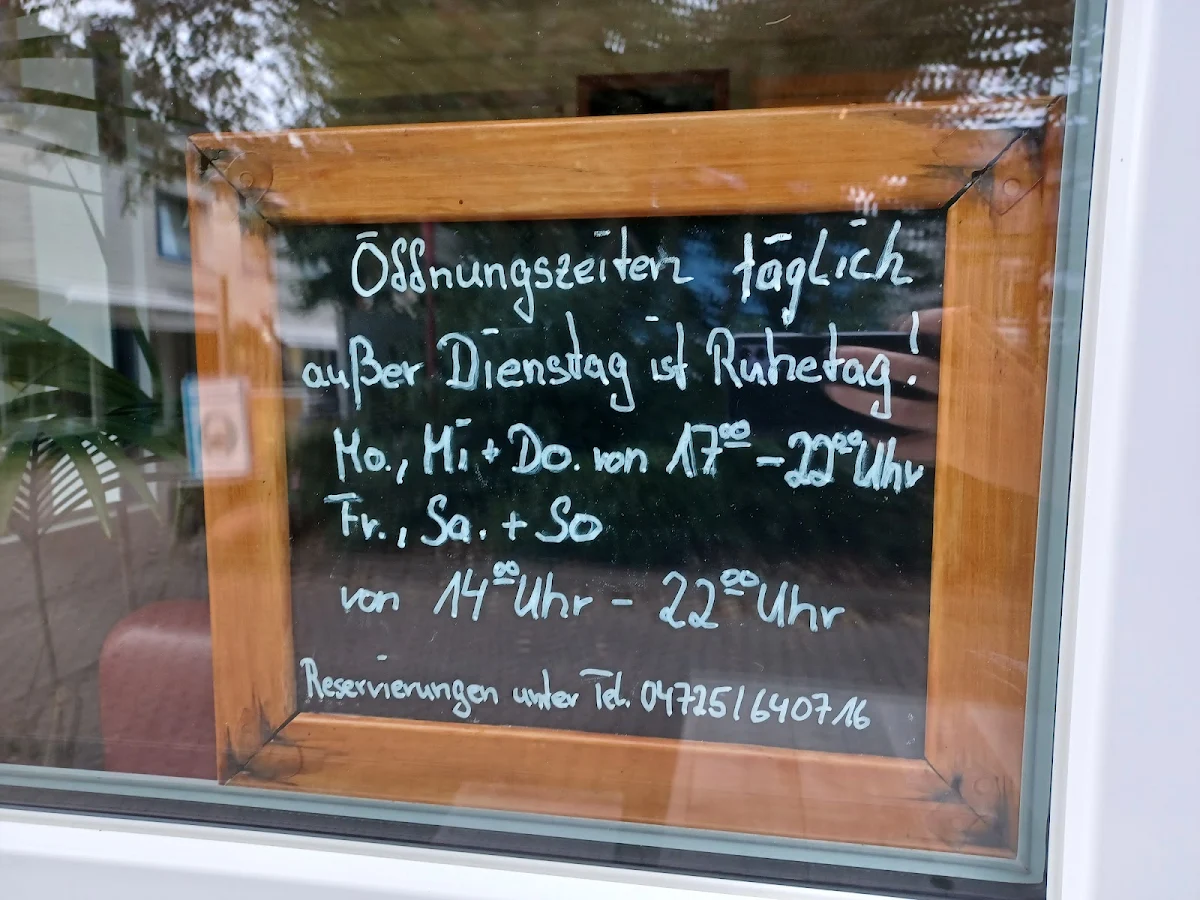 Öffnungszeiten täglich
außer Dienstag ist Ruhetag!
Mo., Mi + Do. von 17⁰⁰ - 22⁰⁰ Uhr
Fr., Sa. + So
von 14⁰⁰ Uhr - 22⁰⁰ Uhr
Reservierungen unter Tel. 04725/640716